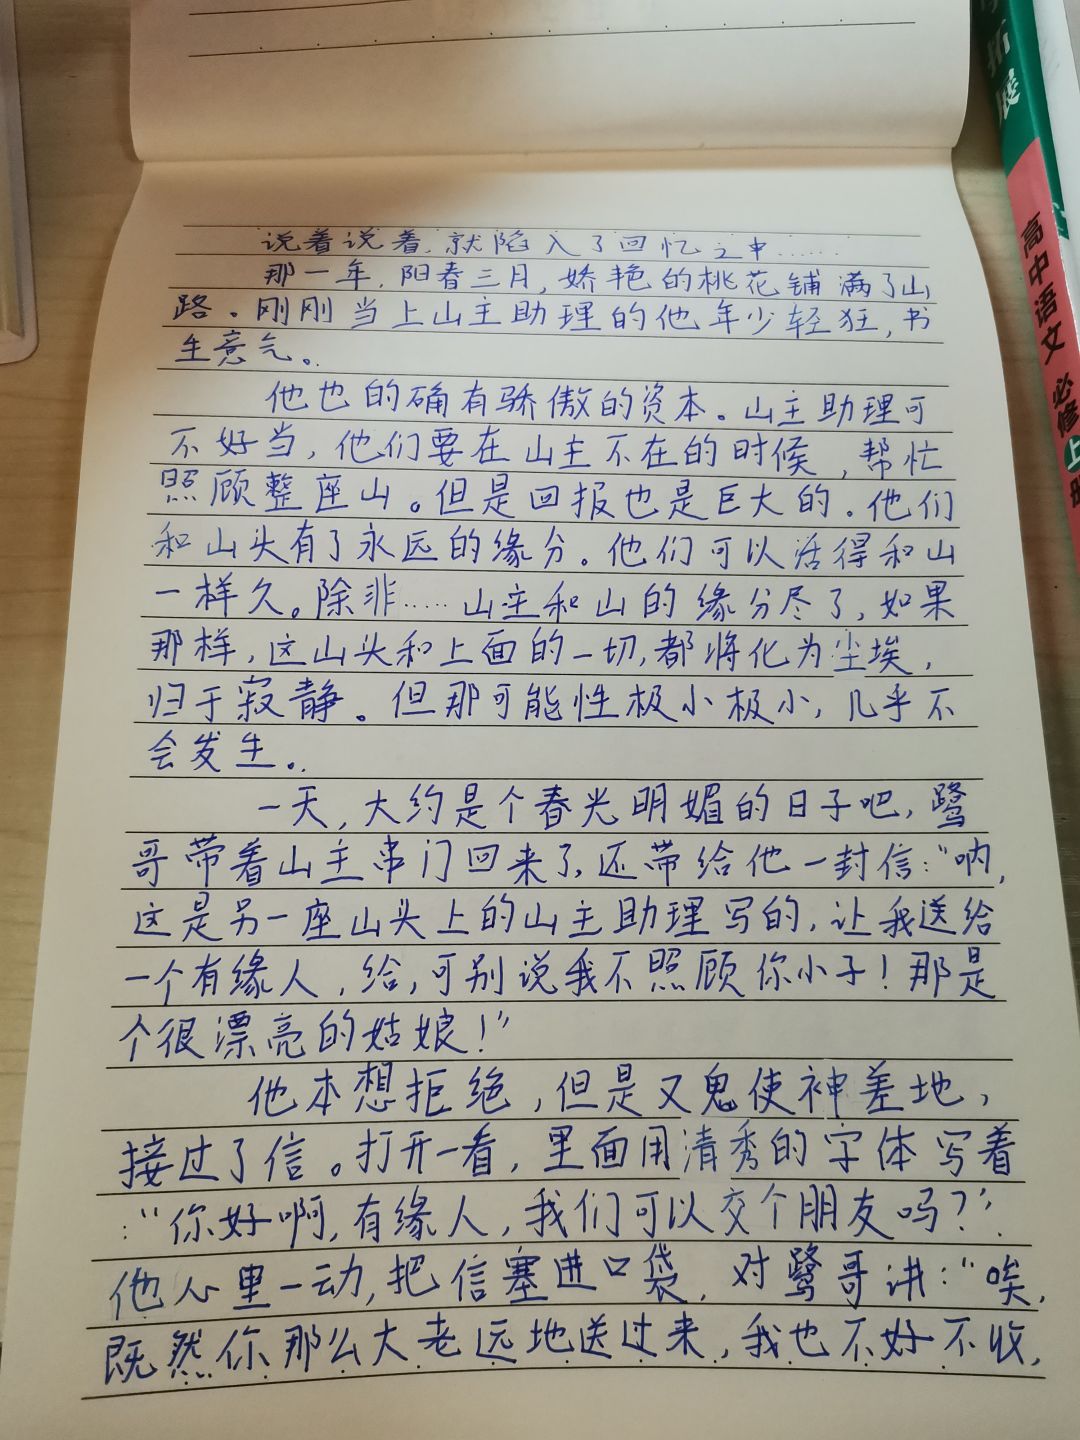 说着说着,就陷入了回忆之中……
那一年,阳春三月,娇艳的桃花铺满了山
路。刚刚当上山主助理的他年少轻狂,书
生意气。
他也的确有骄傲的资本。山主助理可
不好当,他们要在山主不在的时候,帮忙
照顾整座山。但是回报也是巨大的。他们
和山头有了永远的缘分。他们可以活得和山
一样久。除非……山主和山的缘分尽了,如果
那样,这山头和上面的一切,都将化为尘埃,
归于寂静。但那可能性极小极小,几乎不
会发生。
一天,大约是个春光明媚的日子吧,鹭
哥带着山主串门回来了,还带给他一封信:“呐,
这是另一座山头上的山主助理写的,让我送给
一个有缘人,给,可别说我不照顾你小子!那是
个很漂亮的姑娘!”
他本想拒绝,但是又鬼使神差地,
接过了信。打开一看,里面用清秀的字体写着
:“你好啊,有缘人,我们可以交个朋友吗?”
他心里一动,把信塞进口袋,对鹭哥讲:“唉,
既然你那么大老远地送过来,我也不好不收,
拓展
高中语文 必修 上册